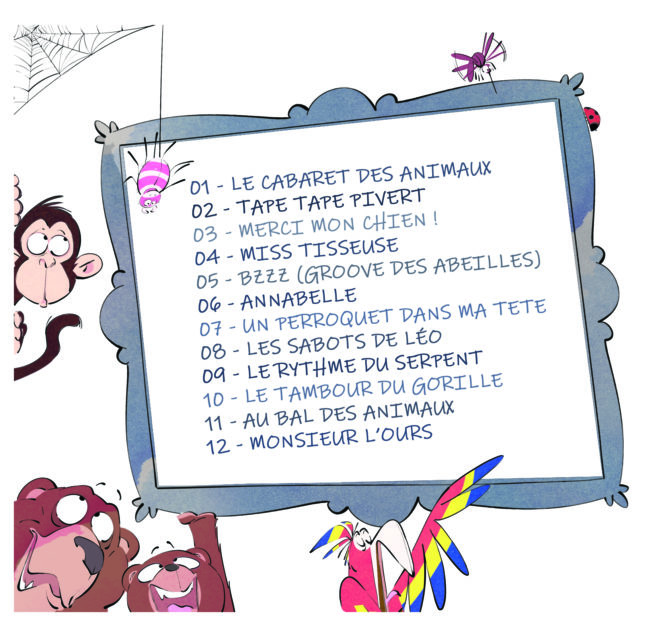 01 - LE CABARET DES ANIMAUX
02 - TAPE TAPE PIVERT
03 - MERCI MON CHIEN !
04 - MISS TISSEUSE
05 - BZZZ (GROOVE DES ABEILLES)
06 - ANNABELLE
07 - UN PERROQUET DANS MA TETE
08 - LES SABOTS DE LÉO
09 - LE RYTHME DU SERPENT
10 - LE TAMBOUR DU GORILLE
11 - AU BAL DES ANIMAUX
12 - MONSIEUR L'OURS